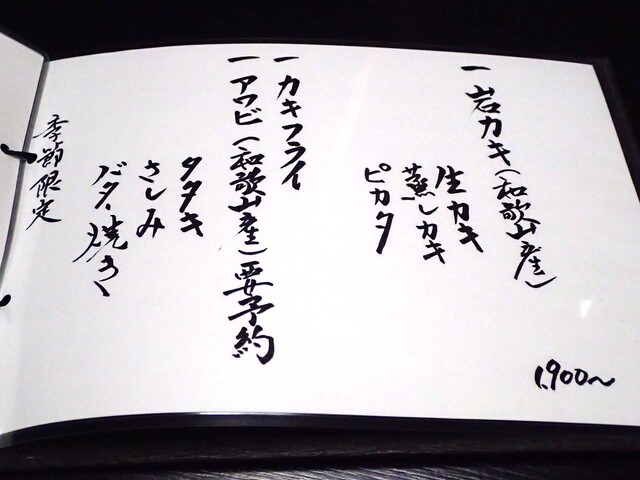 一 岩カキ(和歌山産)
生カキ
蒸しカキ
ピカタ
1,900〜
一 カキフライ
一 アワビ(和歌山産)要予約
タタキ
さしみ
バター焼き
季節限定